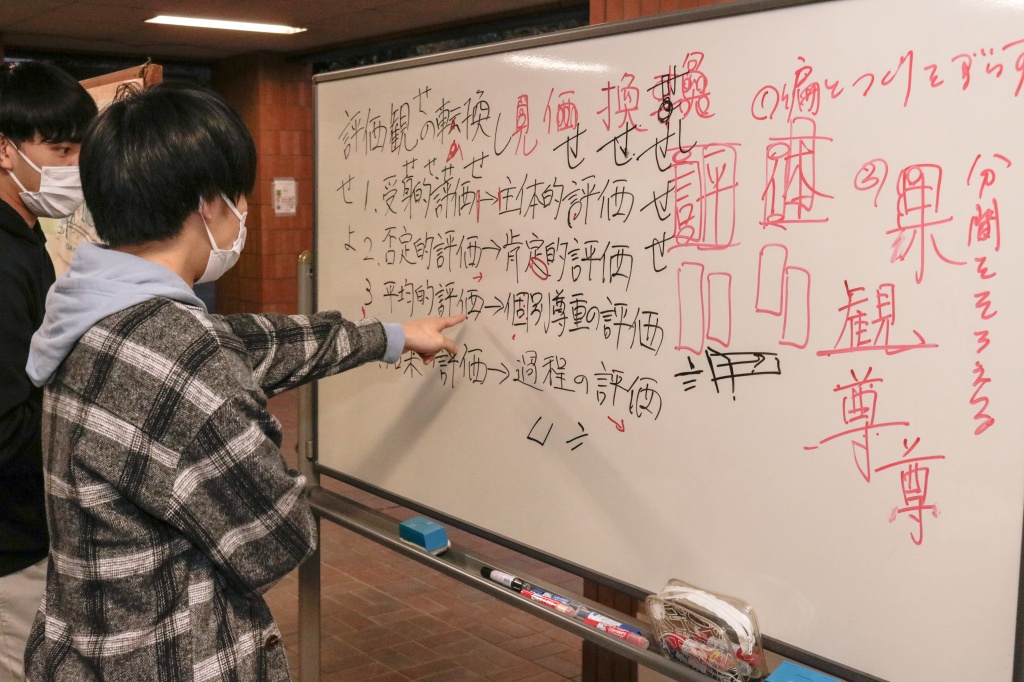 評価観の転換
1.受動的評価→主体的評価
2.否定的評価→肯定的評価
3 平均的評価→個別尊重の評価
結果の評価→過程の評価
見価換
せせせ
①偏とつくりをずらす
評
価
②果
観
尊
尊
分間をそろえる